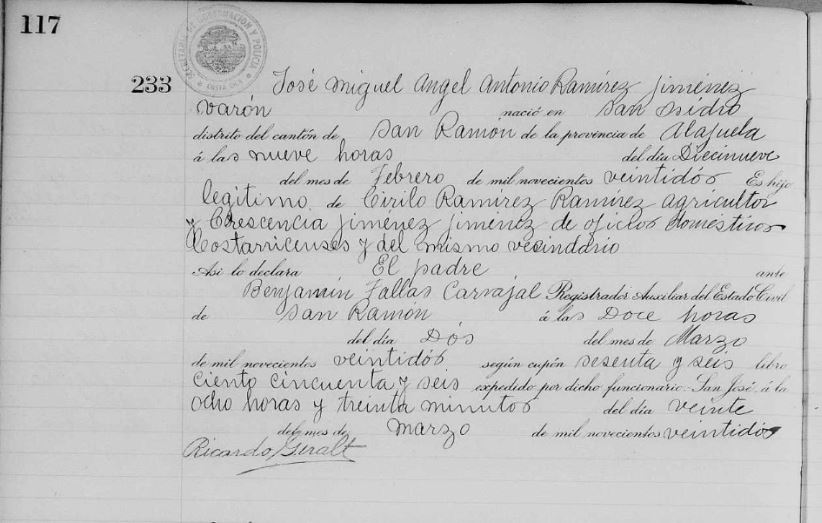 117
SECRETARIA DE GOBERNACION Y POLICIA
COSTA RICA
233 José Miguel Angel Antonio Ramírez Jiménez
varón nació en San Isidro
distrito del cantón de San Ramón de la provincia de Alajuela
á las nueve horas del día Diecinueve
del mes de Febrero de mil novecientos veintidós Es hijo
legítimo de Cirilo Ramírez Ramírez agricultor
y Crescencia Jiménez Jiménez de oficios domésticos
Costarricenses y del mismo vecindario
Así lo declara El padre ante
Benjamín Fallas Carvajal Registrador Auxiliar del Estado Civil
de San Ramón á las Doce horas
del día Dós del mes de Marzo
de mil novecientos veintidós según cupón sesenta y seis libro
ciento cincuenta y seis expedido por dicho funcionario. San José, á la
ocho horas y treinta minutos del día veinte
del mes de marzo de mil novecientos veintidós
Ricardo Geralt
233